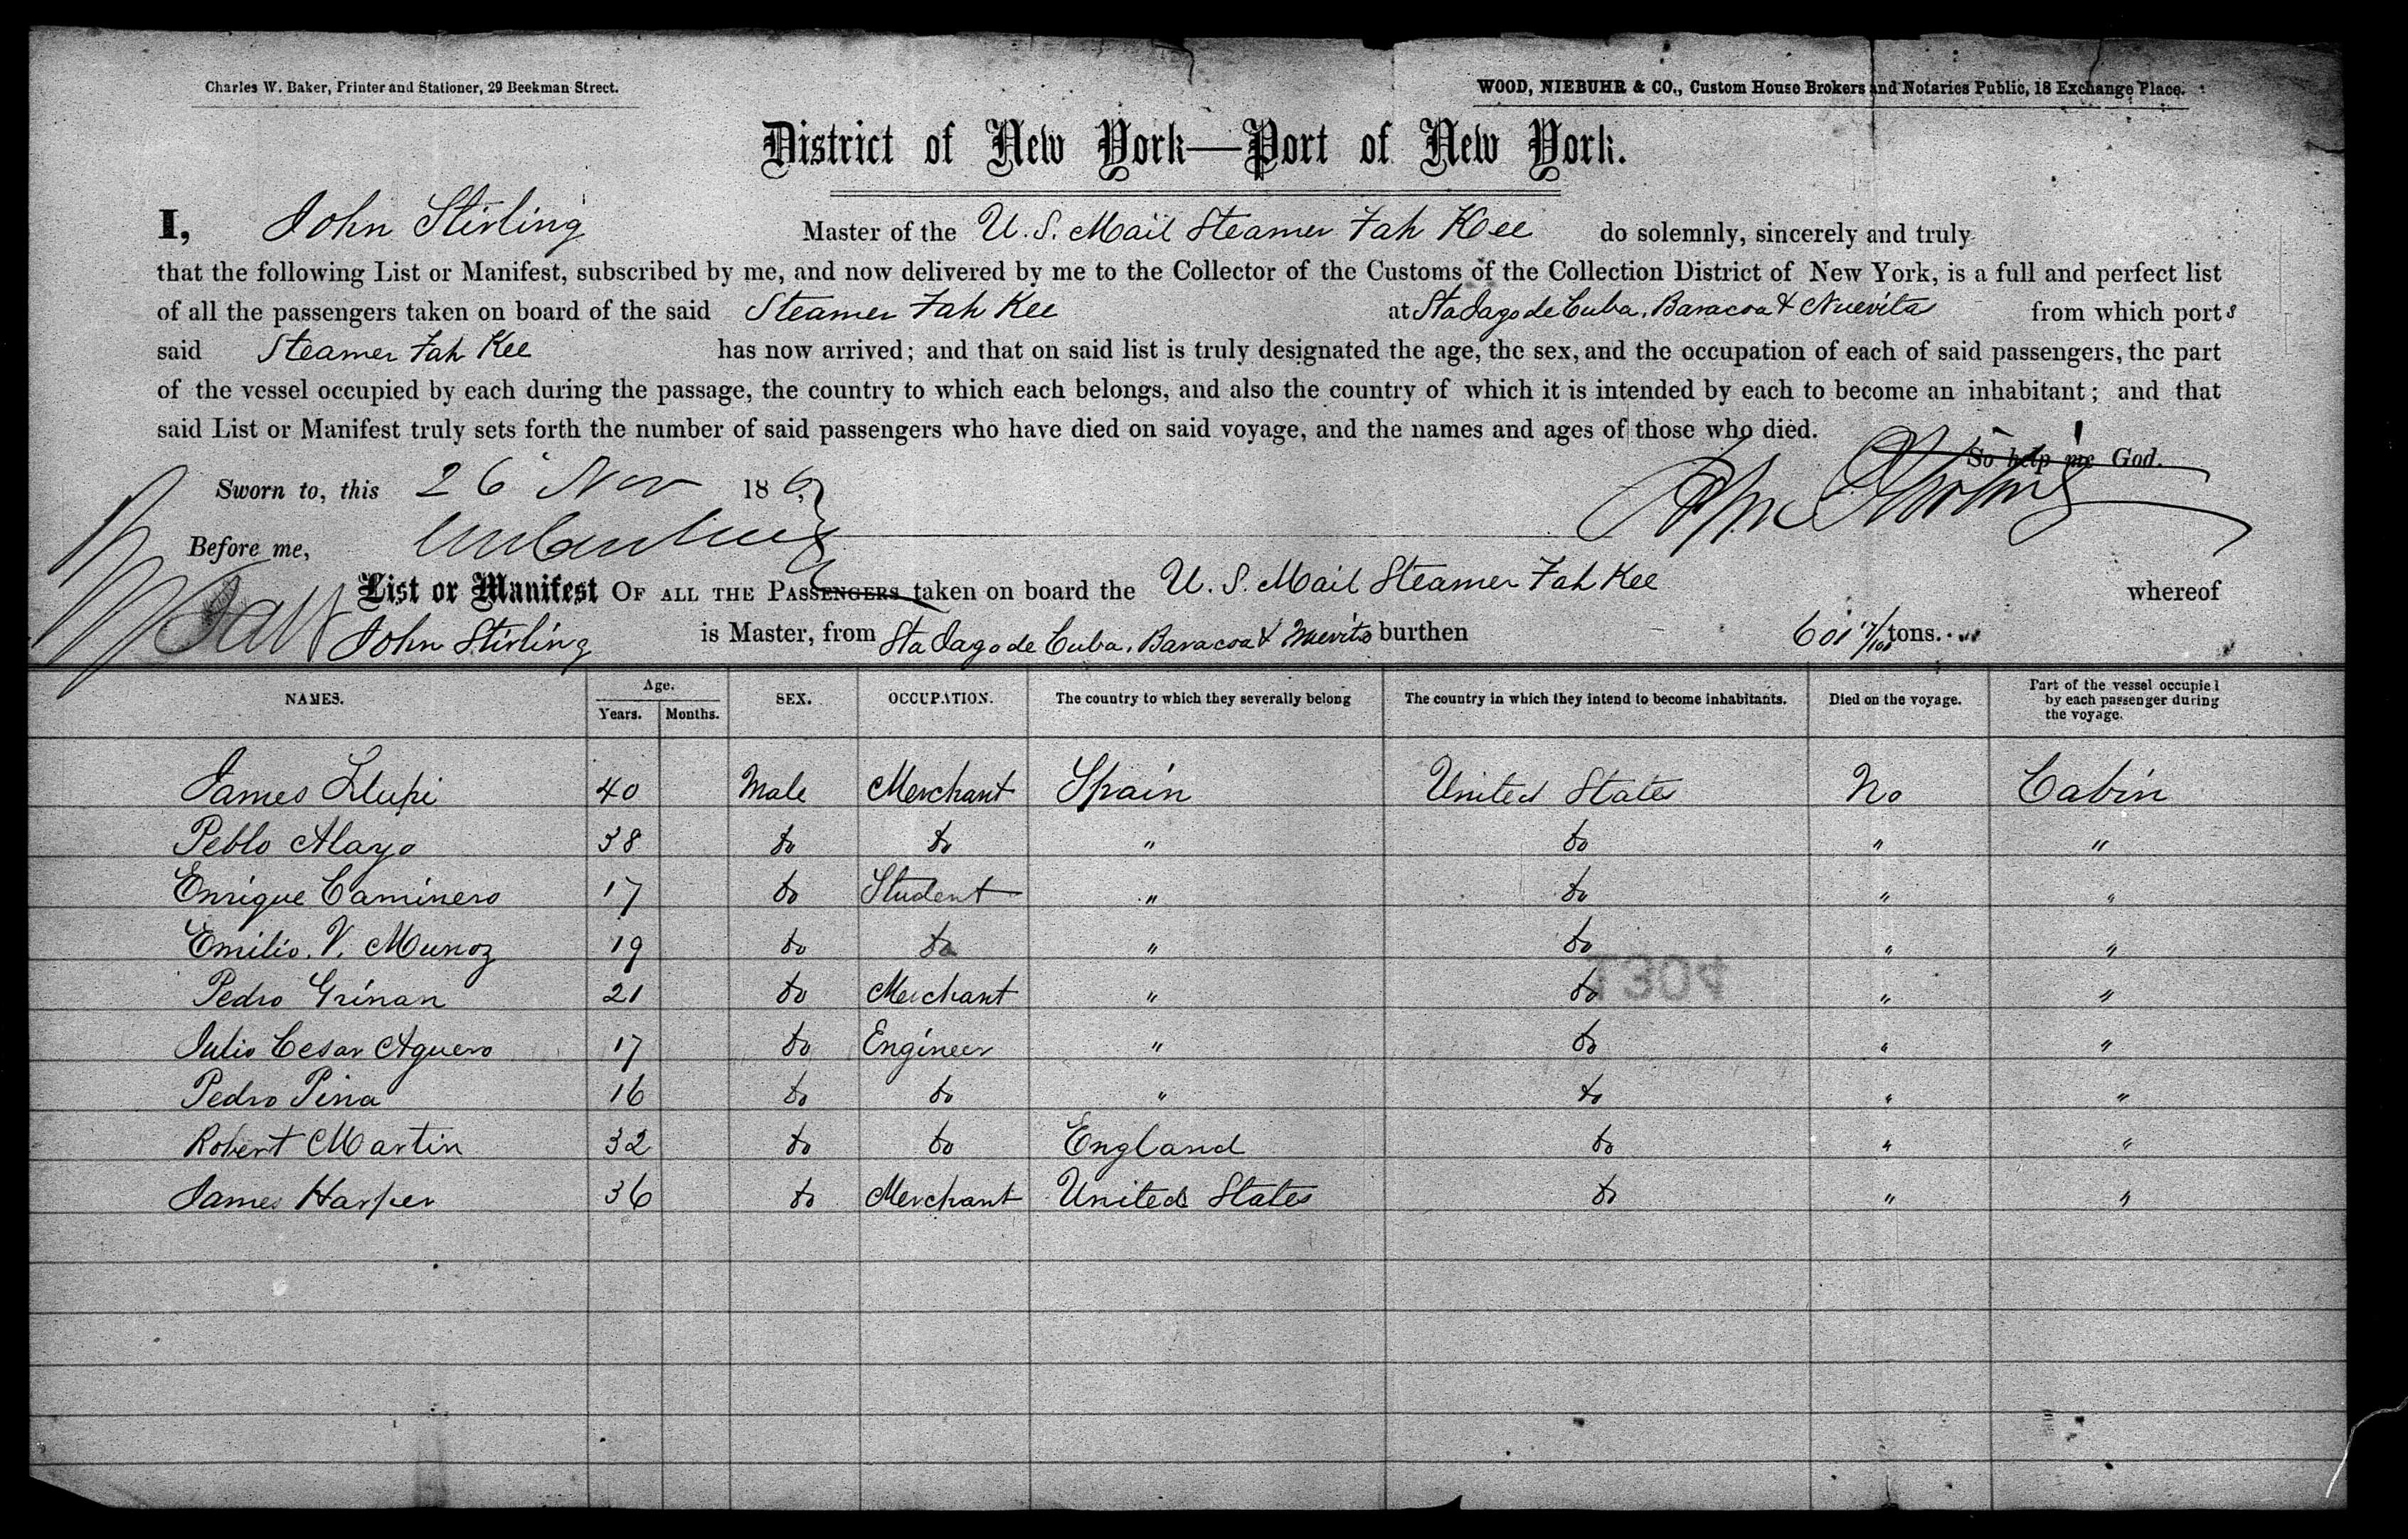 Charles W. Baker, Printer and Stationer, 29 Beekman Street.
WOOD, NIEBUHR & CO., Custom House Brokers and Notaries Public, 18 Exchange Place.
District of New York—Port of New York.
I, John Stirling Master of the U. S. Mail Steamer Fah Kee do solemnly, sincerely and truly
that the following List or Manifest, subscribed by me, and now delivered by me to the Collector of the Customs of the Collection District of New York, is a full and perfect list
of all the passengers taken on board of the said Steamer Fah Kee at Sta Jago de Cuba, Baracoa & Nuevita from which ports
said Steamer Fah Kee has now arrived; and that on said list is truly designated the age, the sex, and the occupation of each of said passengers, the part
of the vessel occupied by each during the passage, the country to which each belongs, and also the country of which it is intended by each to become an inhabitant; and that
said List or Manifest truly sets forth the number of said passengers who have died on said voyage, and the names and ages of those who died.
So help me God.
Sworn to, this 26 Nov 186
John Stirling
Before me,
List or Manifest OF ALL THE PASSENGERS taken on board the U. S. Mail Steamer Fah Kee whereof
John Stirling is Master, from Sta Jago de Cuba, Baracoa & Nuevita burthen 601 17/100 tons.
NAMES. Age. Years. Months. SEX. OCCUPATION. The country to which they severally belong The country in which they intend to become inhabitants. Died on the voyage. Part of the vessel occupied by each passenger during the voyage.
James Llupi 40 Male Merchant Spain United States No Cabin
Peblo Alayo 38 do do " do " "
Enrique Caminero 17 do Student " do " "
Emilio. V. Munoz 19 do do " do " "
Pedro Grinan 21 do Merchant " do " "
1304
Julio Cesar Aguero 17 do Engineer " do " "
Pedro Pina 16 do do " do " "
Robert Martin 32 do do England do " "
James Harper 36 do Merchant United States do " "